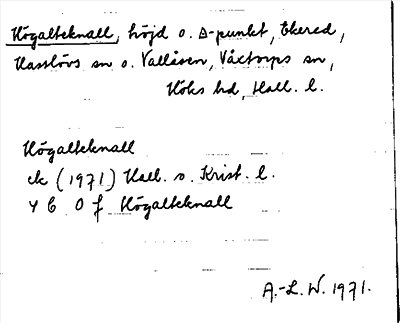 Högalteknall, höjd o. Δ-punkt, Ekered,
Hasslövs sn o. Vallåsen, Våxtorps sn,
Höks hd, Hall. l.
Högalteknall
ek (1971) Hall. o. Krist. l.
4 C 0 f Högalteknall
A.-L. W. 1971.